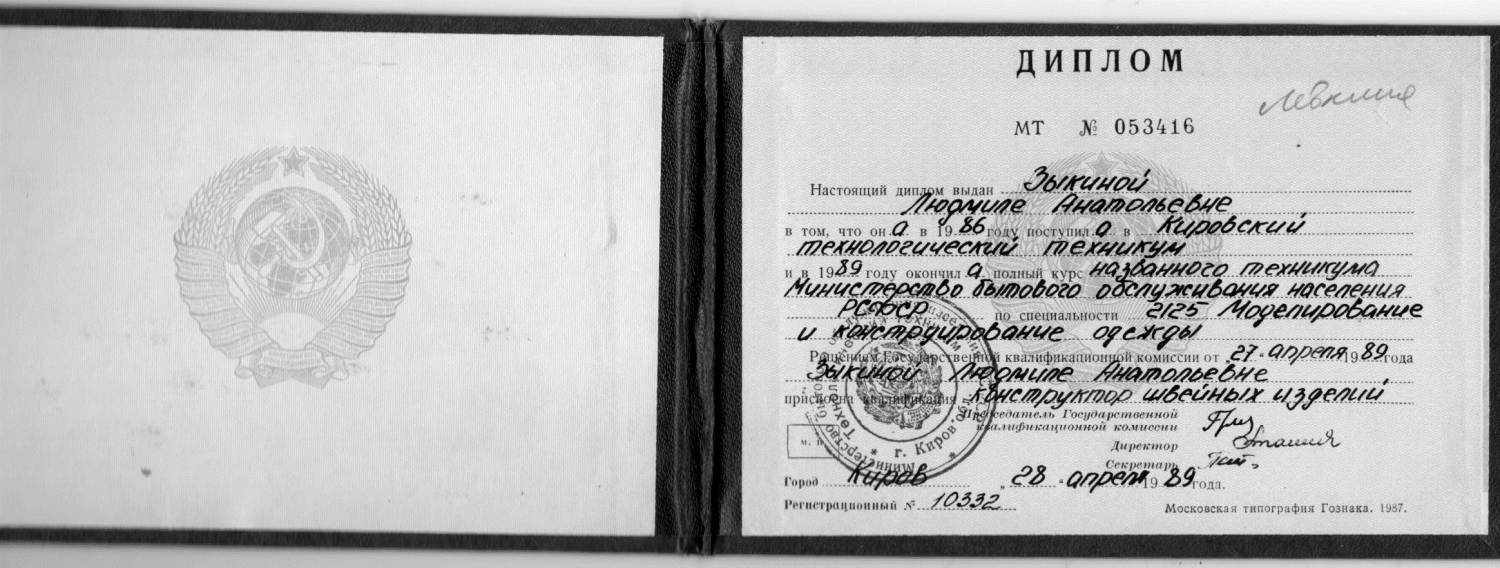 ДИПЛОМ
МТ № 053416
Настоящий диплом выдан Зыкиной
Людмиле Анатольевне
в том, что он а в 19 86 году поступил а в Кировский
технологический техникум
и в 19 89 году окончил а полный курс названного техникума
Министерство бытового обслуживания населения
РСФСР по специальности 2125 Моделирование
и конструирование одежды
Решением Государственной квалификационной комиссии от „ 27 “ апреля 19 89 года
Зыкиной Людмиле Анатольевне
присвоена квалификация конструктор швейных изделий
Председатель Государственной
квалификационной комиссии
Директор
Секретарь
М. П.
г. Киров
Город Киров „ 28 “ апреля 19 89 года.
Регистрационный № 10332
Московская типография Гознака. 1987.